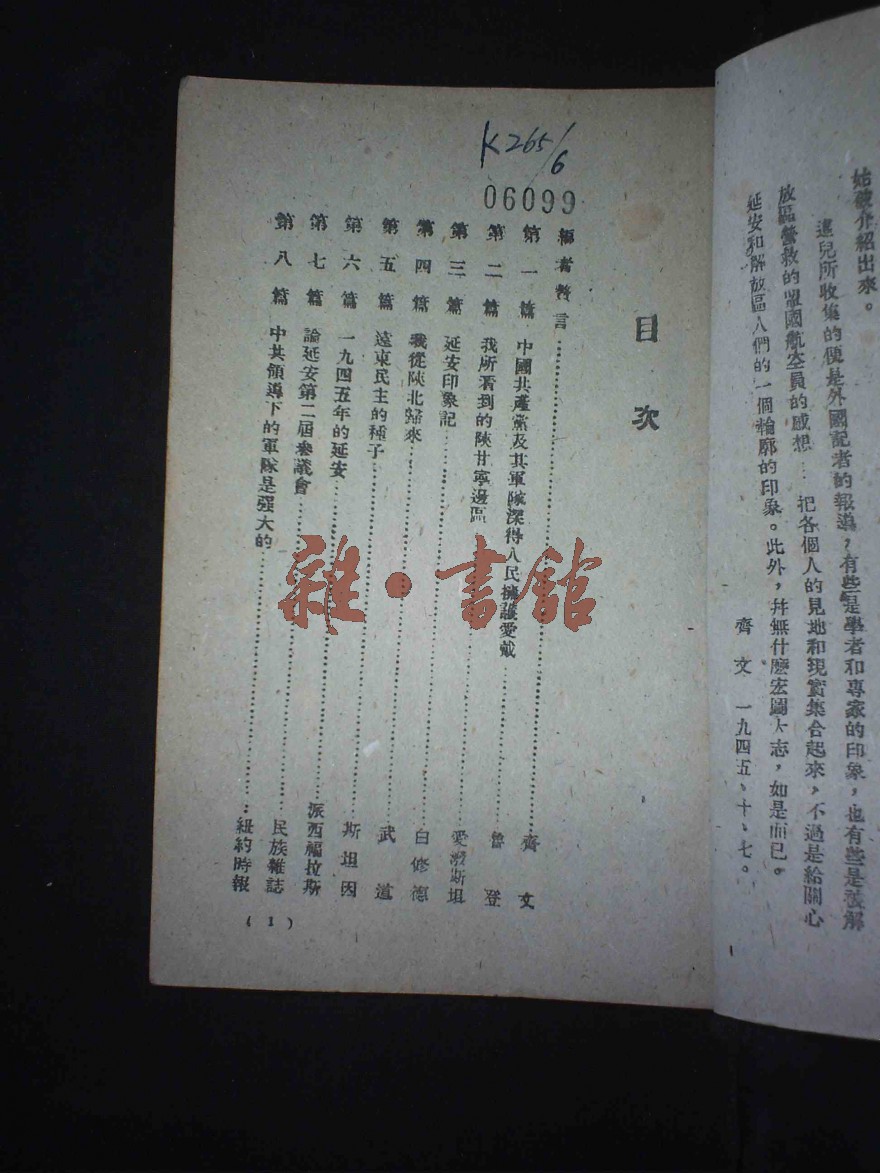 始被介紹出來。
這兒所收集的便是外國記者的報導，有些是學者和專家的印象，也有些是被解
放區營救的盟國航空員的感想… 把各個人的見地和現實集合起來，不過是給關心
延安和解放區人們的一個輪廓的印象。此外，幷無什麼宏圖大志，如是而已。
齊文 一九四五、十、七。
1
K265/6
06099
目次
編者贅言…………齊文
第一篇 中國共產黨及其軍隊深得人民擁護愛戴…………魯登
第二篇 我所看到的陝甘寧邊區…………愛潑斯坦
第三篇 延安印象記…………白修德
第四篇 我從陝北歸來…………武道
第五篇 遠東民主的種子…………斯坦因
第六篇 一九四五年的延安…………派西福拉斯
第七篇 論延安第二屆參議會…………民族雜誌
第八篇 中共領導下的軍隊是强大的…………紐約時報
(1)
雜·書館